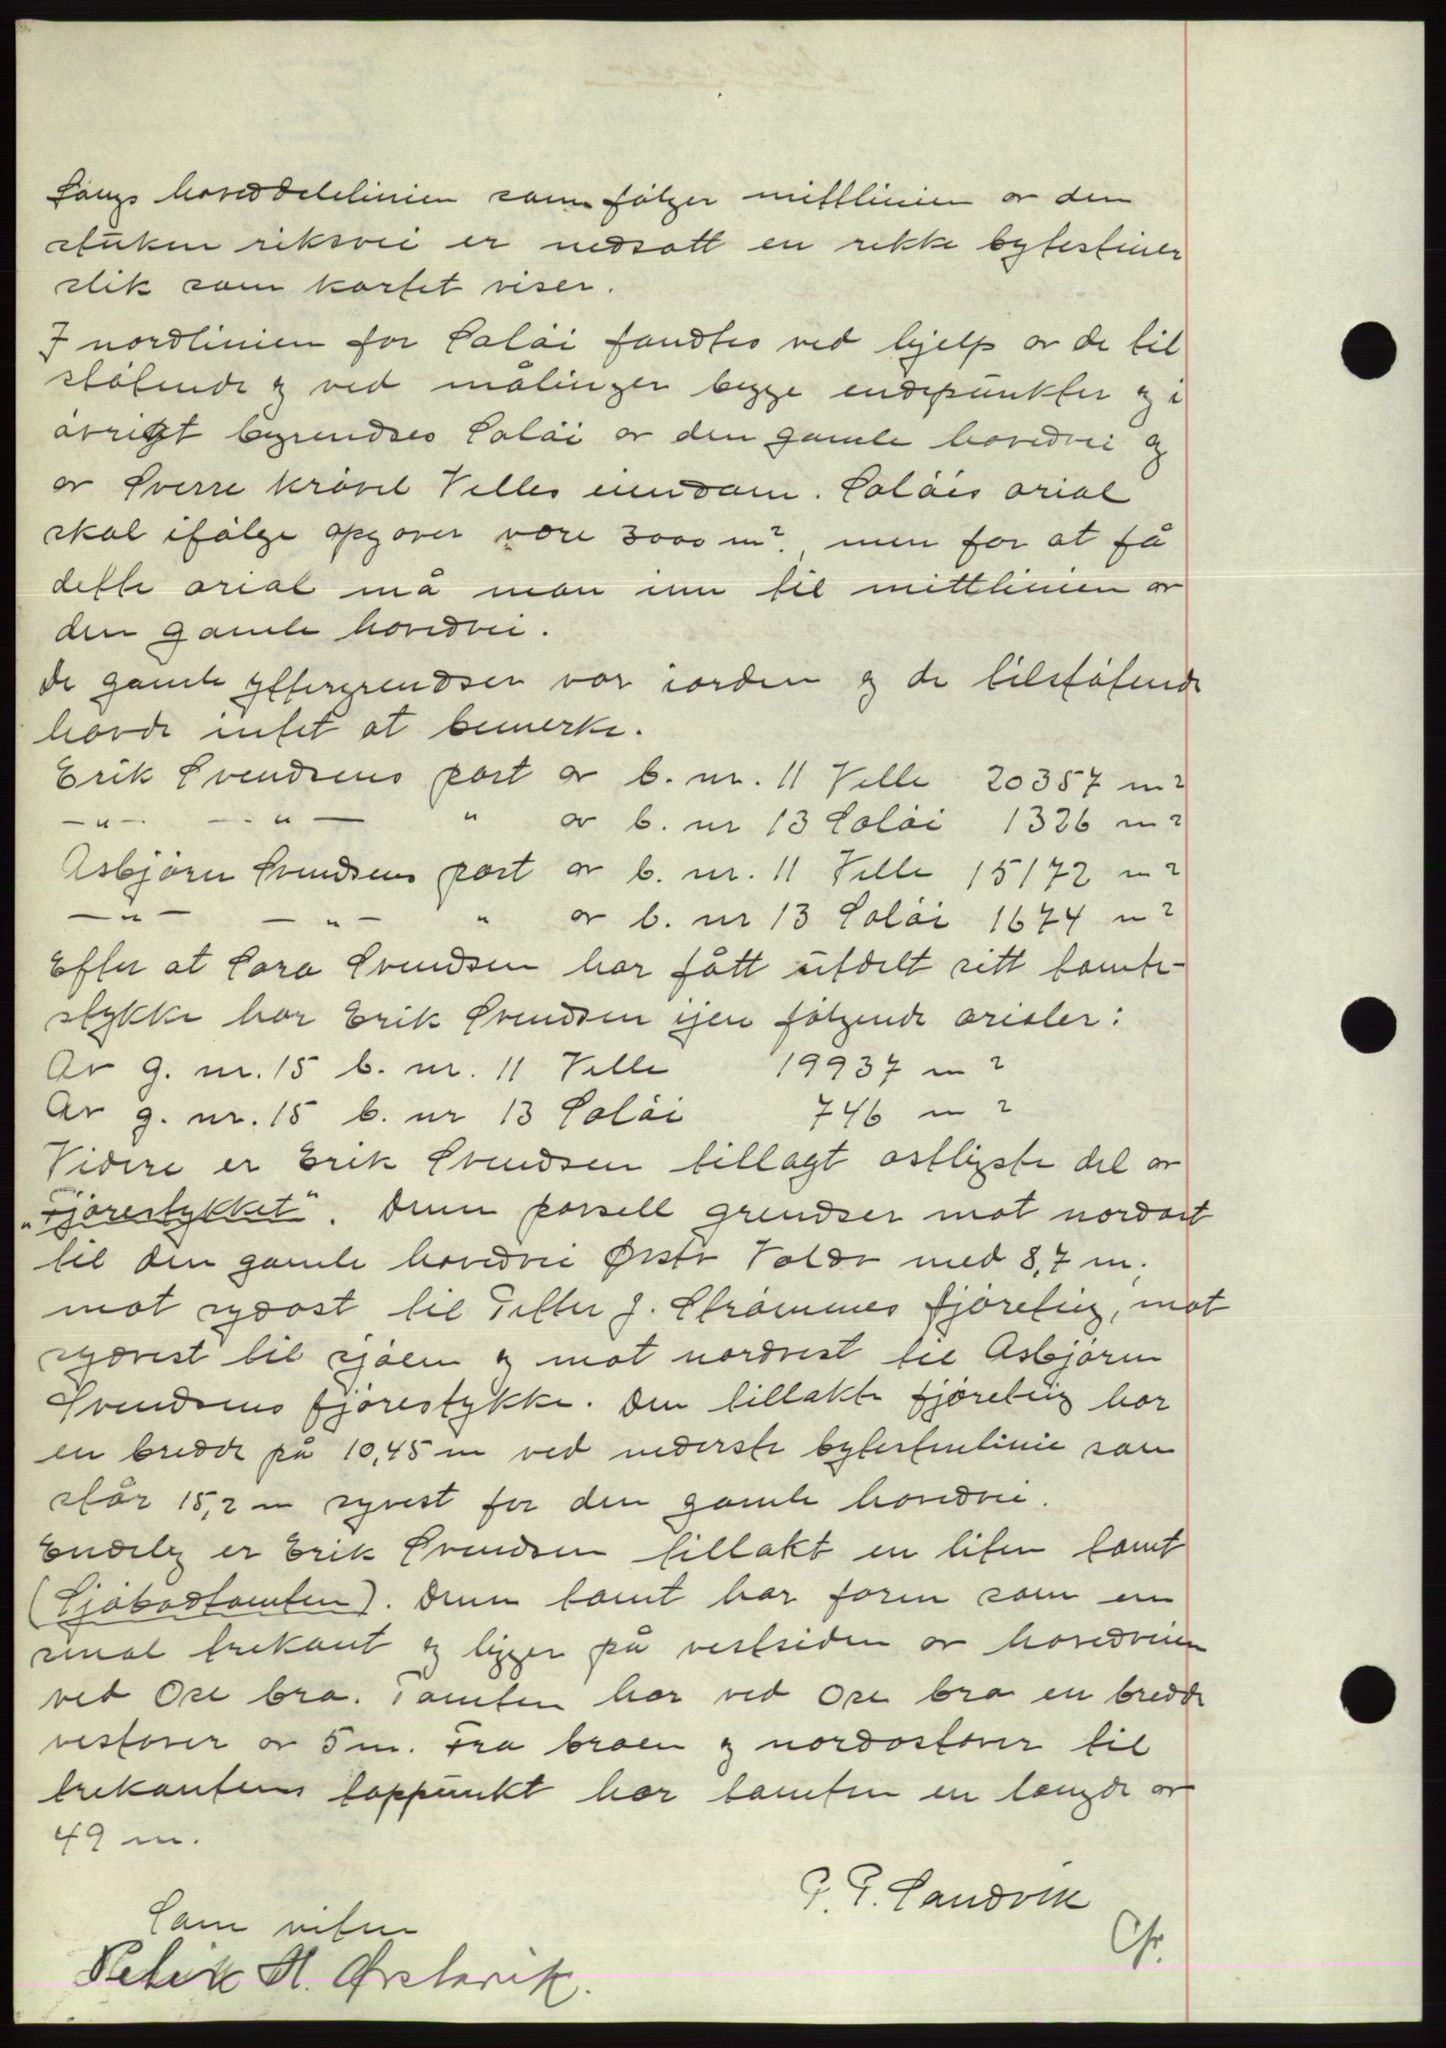 Langs hoveddelelinien som følger mittlinien av den
stukken riksvei er nedsatt en rekke bytesteiner
slik som kartet viser.
I nordlinien for Soløi fandtes ved hjelp av de til
støtende og ved målinger begge endepunkter og i
øvrigt begrendses Soløi av den gamle hovedvei og
av Sverre Krøvel Velles eiendom. Soløis arial
skal ifølge opgaver være 3000 m², men for at få
dette arial må man inn til mittlinien av
den gamle hovedvei.
De gamle yttergrendser var iorden og de tilstøtende
havde intet at bemerke.
Erik Svendsens part av b. nr. 11 Velle 20357 m²
—"— —"— " av b. nr 13 Soløi 1326 m²
Asbjørn Svendsens part av b. nr. 11 Velle 15172 m²
—"— —"— " av b. nr 13 Soløi 1674 m²
Efter at Sara Svendsen har fått utdelt sitt tomte-
stykke har Erik Svendsen igjen følgende arialer:
Av g. nr. 15 b. nr. 11 Velle 19937 m²
Av g. nr. 15 b. nr 13 Soløi 746 m²
Videre er Erik Svendsen tillagt østligste del av
„Fjørestykket". Denn parsell grendser mot nordost
til den gamle hovedvei Ørsta Volda med 8,7 m,
mot sydost til Petter J. Strømmes fjøreteig, mot
sydvest til sjøen og mot nordvest til Asbjørn
Svendsens fjørestykke. Den tillakte fjøreteig har
en bredde på 10,45 m ved nederste bytestenlinie som
står 15,2 m syvest for den gamle hovedvei.
Endelig er Erik Svendsen tillakt en liten tomt
(Sjøbodtomten). Denn tomt har form som en
smal trekant og ligger på vestsiden av hovedveien
ved Ose bro. Tomten har ved Ose bro en bredde
vestover av 5 m. Fra broen og nordostover til
trekantens toppunkt har tomten en længde av
49 m.
P. P. Sandvik
Som vitne
Peder H. Ørstavik.